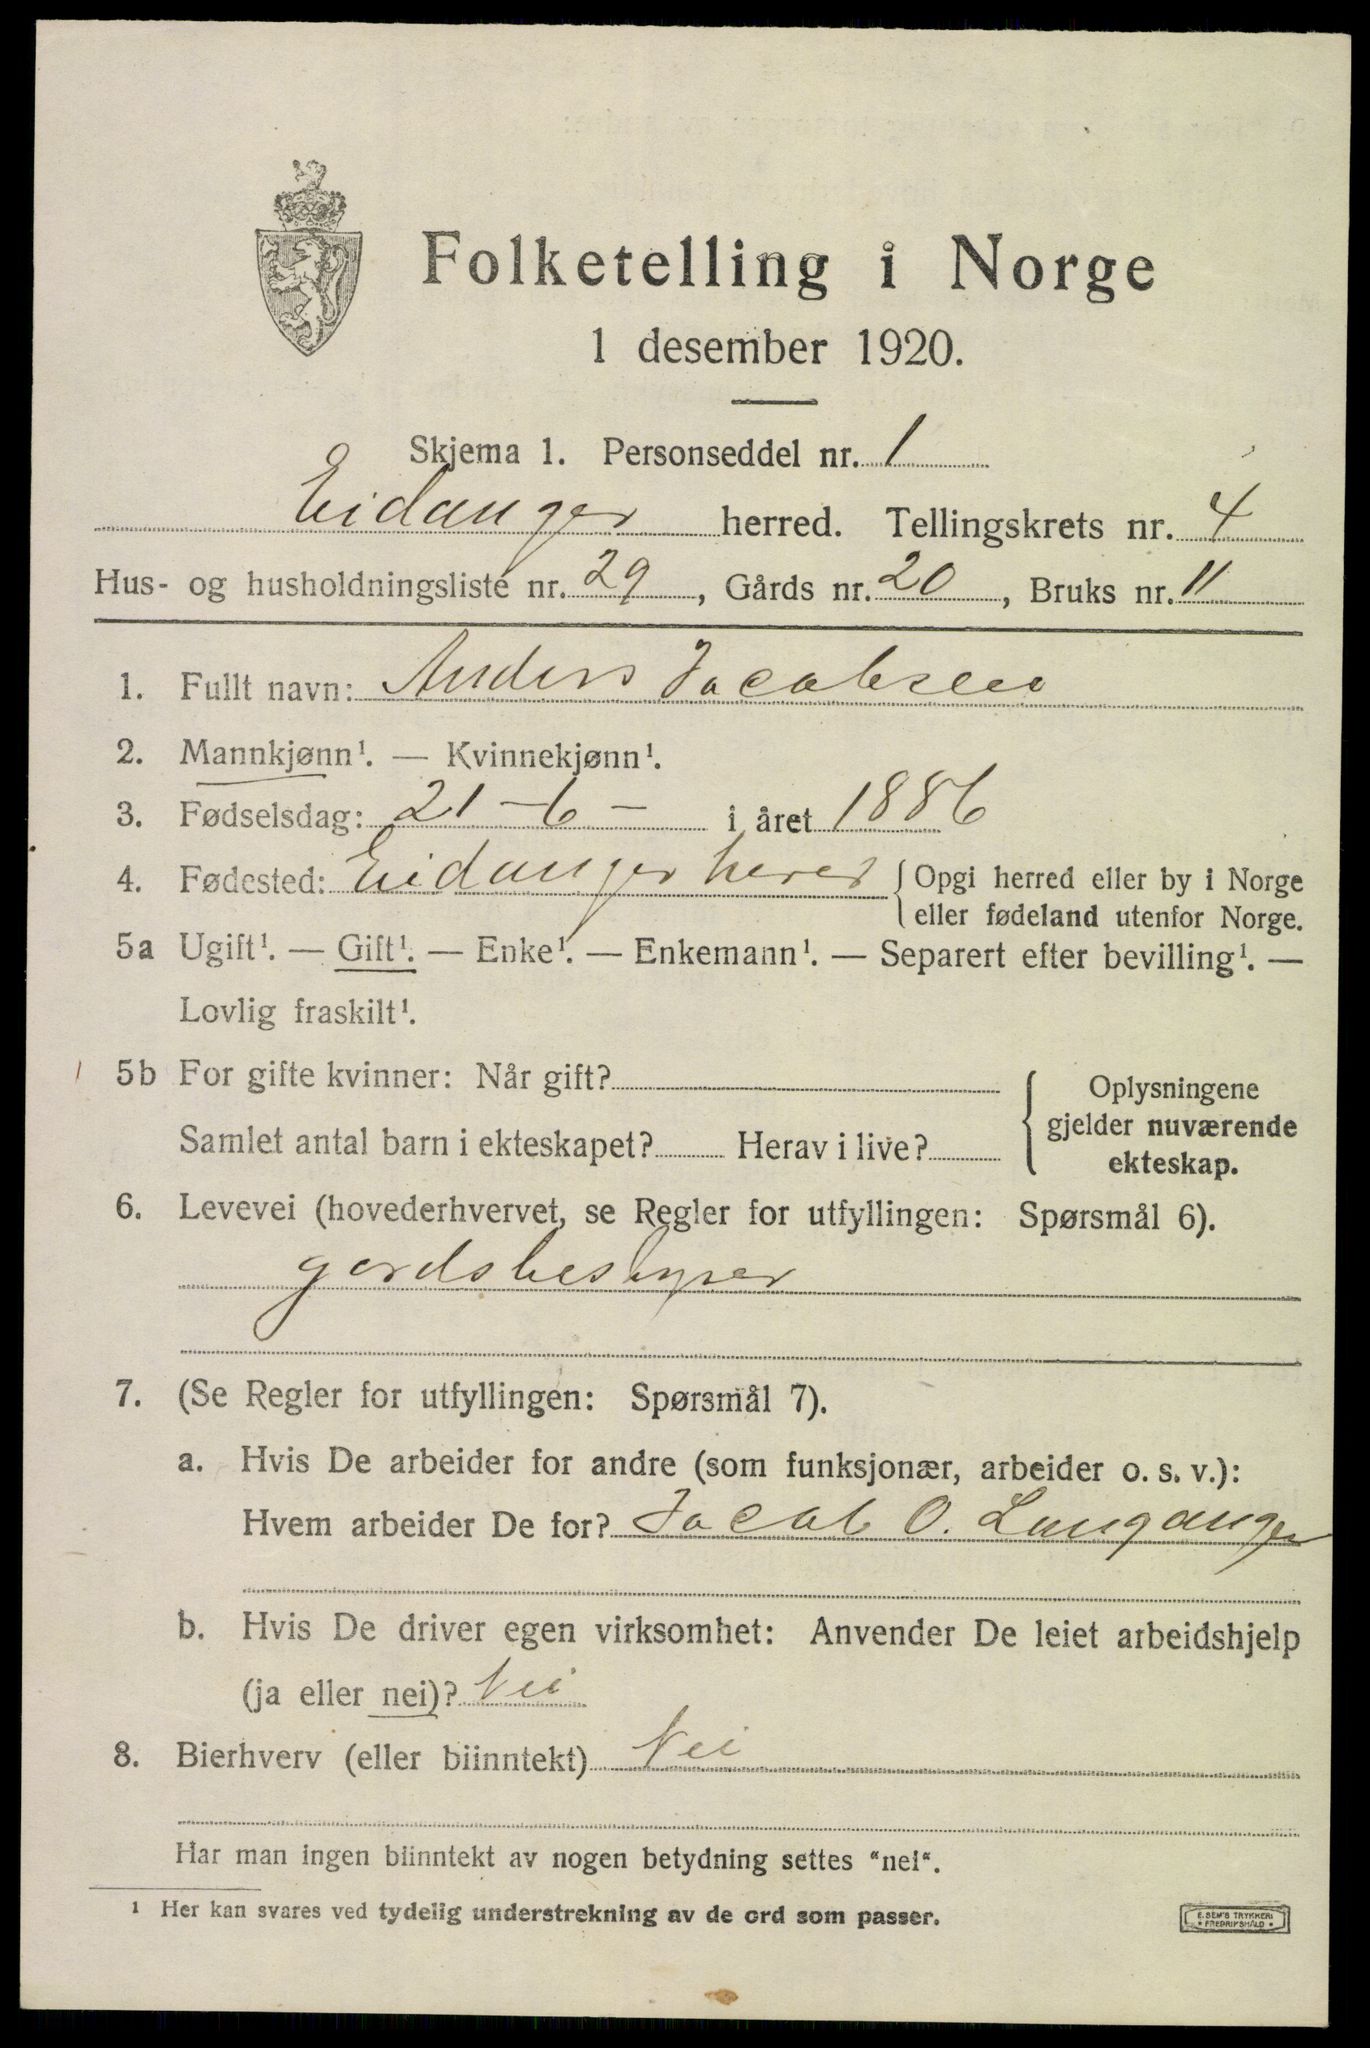 Folketelling i Norge
1 desember 1920.
Skjema 1. Personseddel nr. 1
Eidanger herred. Tellingskrets nr. 4
Hus- og husholdningsliste nr. 29, Gårds nr. 20, Bruks nr. 11
1. Fullt navn: Anders Jacobsen
2. Mannkjønn¹. — Kvinnekjønn¹.
3. Fødselsdag: 21-6- i året 1886
4. Fødested: Eidanger herred { Opgi herred eller by i Norge
eller fødeland utenfor Norge.
5a Ugift¹. — Gift¹. — Enke¹. — Enkemann¹. — Separert efter bevilling¹. —
Lovlig fraskilt¹.
5b For gifte kvinner: Når gift?
Samlet antal barn i ekteskapet? Herav i live?
Oplysningene
gjelder nuværende
ekteskap.
6. Levevei (hovederhvervet, se Regler for utfyllingen: Spørsmål 6).
gordsbestyrer
7. (Se Regler for utfyllingen: Spørsmål 7).
a. Hvis De arbeider for andre (som funksjonær, arbeider o. s. v.):
Hvem arbeider De for? Jacob O. Langanger
b. Hvis De driver egen virksomhet: Anvender De leiet arbeidshjelp
(ja eller nei)? Nei
8. Bierhverv (eller biinntekt) Nei
Har man ingen biinntekt av nogen betydning settes "nei".
¹ Her kan svares ved tydelig understrekning av de ord som passer.
E. SEM'S TRYKKERI
FREDRIKSHALD